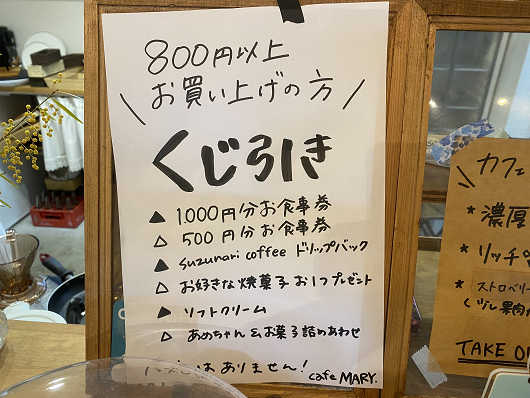 800円以上
お買い上げの方
くじ引き
▲ 1000円分お食事券
△ 500円分お食事券
▲ suzunari coffee ドリップバック
△ お好きな焼菓子お1つプレゼント
▲ ソフトクリーム
△ あめちゃん&お菓子詰めあわせ
はありません!
cafe MARY.
カフェ
* 濃厚
* リッチ
* ストロベリー
果肉
TAKE O